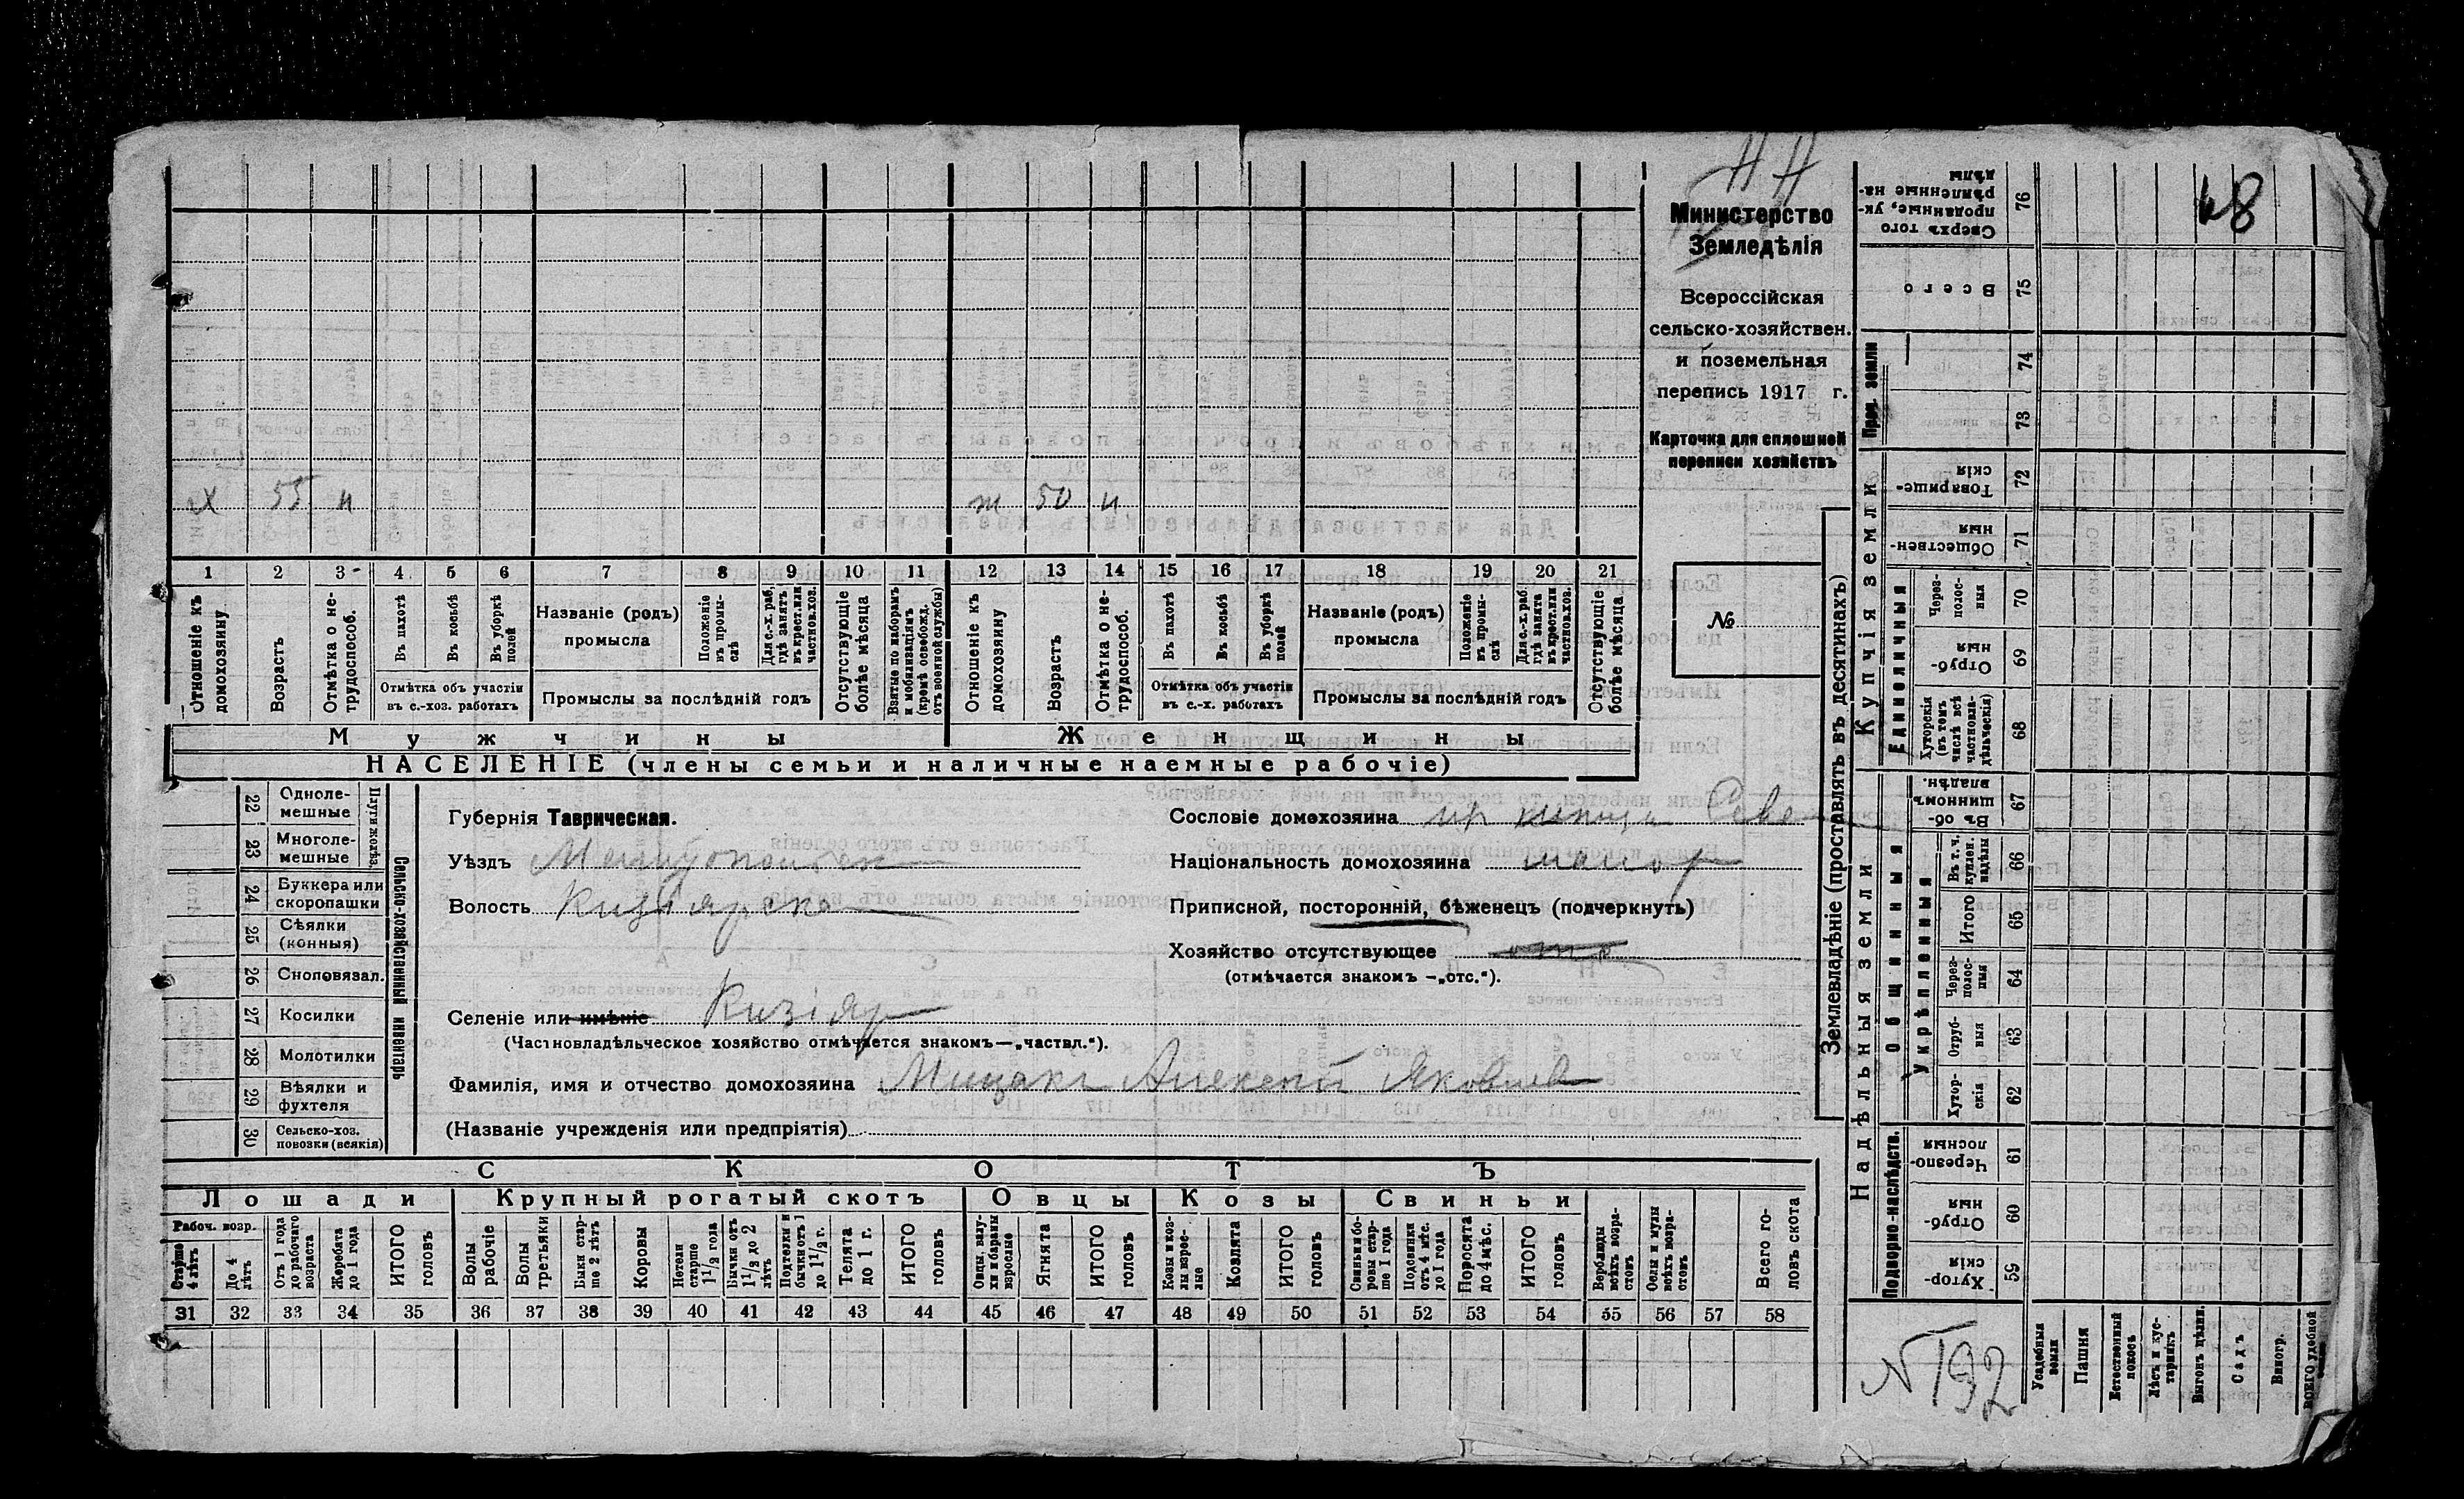 НН
Министерство
Земледѣлія
Всероссійская
сельско-хозяйствен.
и поземельная
перепись 1917 г.
Карточка для сплошной
переписи хозяйствъ
№
48
х 55 н
ж 50 н
1 2 3 4 5 6 7 8 9 10 11 12 13 14 15 16 17 18 19 20 21
Отношеніе къ домохозяину
Возрастъ
Отмѣтка о нетрудоспособ.
Въ пахотѣ
Въ косьбѣ
Въ уборкѣ полей
Отмѣтка объ участіи
въ с.-хоз. работахъ
Названіе (родъ)
промысла
Положеніе въ промыслѣ
Для с.-х. раб, гдѣ занятъ въ крест. или частнов. хоз.
Промыслы за послѣдній годъ
Отсутствующіе болѣе мѣсяца
Взятые по наборамъ и мобилизаціямъ (кромѣ освобожд. отъ военной службы)
Отношеніе къ домохозяину
Возрастъ
Отмѣтка о нетрудоспособ.
Въ пахотѣ
Въ косьбѣ
Въ уборкѣ полей
Отмѣтка объ участіи
въ с.-х. работахъ
Названіе (родъ)
промысла
Положеніе въ промыслѣ
Для с.-х. раб. гдѣ занята въ крест. или частнов. хоз.
Промыслы за послѣдній годъ
Отсутствующіе болѣе мѣсяца
Мужчины
Женщины
НАСЕЛЕНІЕ (члены семьи и наличные наемные рабочіе)
22 Однолемешные
23 Многолемешные
24 Буккера или скоропашки
25 Сѣялки (конныя)
26 Сноповязал.
27 Косилки
28 Молотилки
29 Вѣялки и фухтеля
30 Сельско-хоз. повозки (всякія)
Сельско-хозяйственный инвентарь
Губернія Таврическая.
Уѣздъ
Волость Кизіярска
Селеніе или имѣніе Кизіяр
(Частновладѣльческое хозяйство отмѣчается знакомъ—„частвл.“).
Фамилія, имя и отчество домохозяина Мицакъ Алексей Яковлев
(Названіе учрежденія или предпріятія)
Сословіе домохозяина
Національность домохозяина малор
Приписной, посторонній, бѣженецъ (подчеркнуть)
Хозяйство отсутствующее
(отмѣчается знакомъ —„отс.“).
СКОТЪ
Лошади
Крупный рогатый скотъ
Овцы
Козы
Свиньи
Рабоч. возр.
Старше 4 лѣтъ
До 4 лѣтъ
Отъ 1 года до рабочаго возраста
Жеребята до 1 года
ИТОГО головъ
Волы рабочіе
Волы третьяки
Быки старше 2 лѣтъ
Коровы
Нетели старше 1 1/2 года
Бычки отъ 1 1/2 до 2 лѣтъ
Подтелки и бычки отъ 1 до 1 1/2 г.
Телята до 1 г.
ИТОГО головъ
Овцы, валухи и бараны взрослые
Ягнята
ИТОГО головъ
Козы и козлы взрослые
Козлята
ИТОГО головъ
Свиньи и боровы старше 1 года
Подсвинки отъ 4 мѣс. до 1 года
Поросята до 4 мѣс.
ИТОГО головъ
Верблюды всѣхъ возрастовъ
Ослы и мулы всѣхъ возрастовъ
Всего головъ скота
31 32 33 34 35 36 37 38 39 40 41 42 43 44 45 46 47 48 49 50 51 52 53 54 55 56 57 58
Землевладѣніе (проставлять въ десятинахъ)
Сверхъ того проданные, укрѣпленные надѣлы 76
Всего 75
Прам. земли
74
73
Купчія земли
Товарищескія 72
Общественныя 71
Единоличныя
Черезполосныя 70
Отрубныя 69
Хуторскія (въ томъ числѣ всѣ частновладѣльческія) 68
Надѣльныя земли
Общинныя
Въ общинномъ владѣн. 67
Укрѣпленныя
Въ т. ч. куплен. надѣлы 66
Итого 65
Черезполосныя 64
Отрубныя 63
Хуторскія 62
Подворно-наслѣдств.
Черезполосныя 61
Отрубныя 60
Хуторскія 59
Усадебныя земли
Пашня
Естественный покосъ
Лѣсъ и кустарникъ
Выгонъ цѣлин.
Садъ
Виногр.
ВСЕГО удобной
N 192